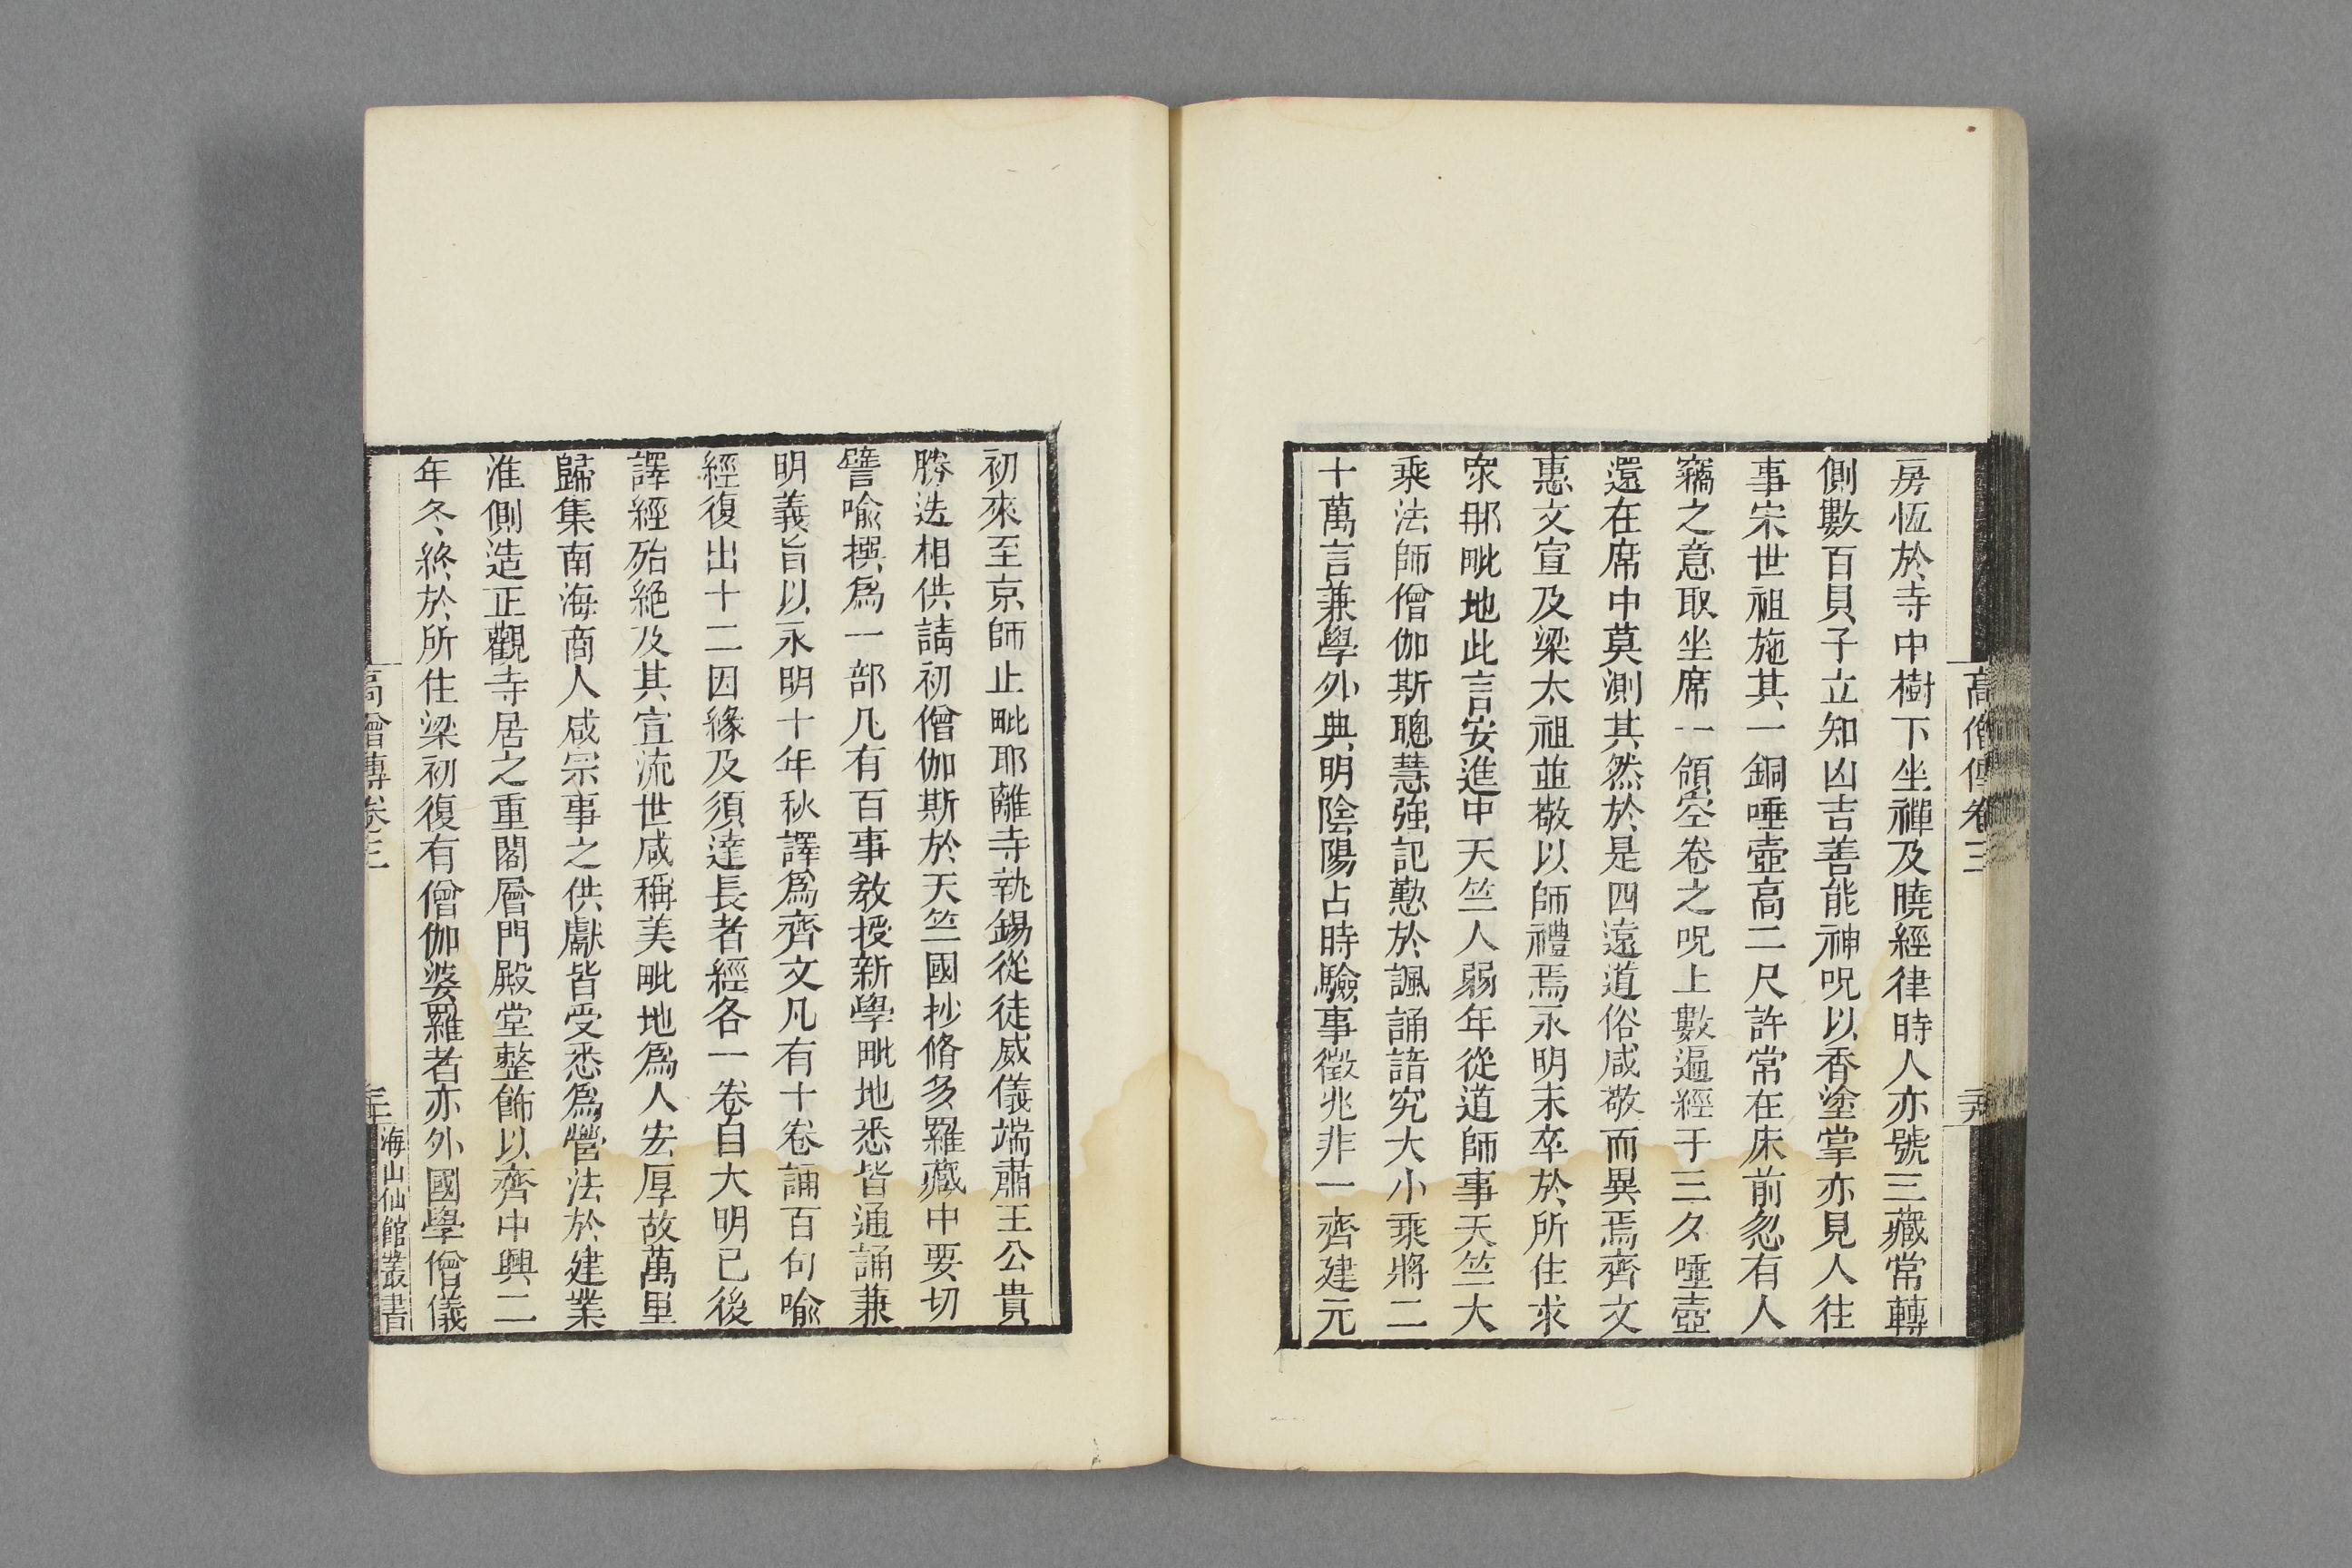 高僧傳卷三
房恆於寺中樹下坐禪及曉經律時人亦號三藏常轉
側數百貝子立知凶吉善能神呪以香塗掌亦見人往
事宋世祖施其一銅唾壺高二尺許常在床前忽有人
竊之意取坐席一領空卷之呪上數遍經于三夕唾壺
還在席中莫測其然於是四遠道俗咸敬而異焉齊文
惠文宣及梁太祖並敬以師禮焉永明末卒於所住求
衆那毗地此言安進中天竺人弱年從道師事天竺大
乘法師僧伽斯聰慧強記懃於諷誦諳究大小乘將二
十萬言兼學外典明陰陽占時驗事徵兆非一齊建元
初來至京師止毗耶離寺執錫從徒威儀端肅王公貴
勝迭相供請初僧伽斯於天竺國抄脩多羅藏中要切
譬喻撰爲一部凡有百事敎授新學毗地悉皆通誦兼
明義旨以永明十年秋譯爲齊文凡有十卷誦百句喻
經復出十二因緣及須達長者經各一卷自大明已後
譯經殆絕及其宣流世咸稱美毗地爲人宏厚故萬里
歸集南海商人咸宗事之供獻皆受悉爲營法於建業
淮側造正觀寺居之重閣層門殿堂整飾以齊中興二
年冬終於所住梁初復有僧伽婆羅者亦外國學僧儀
高僧傳卷三
海山仙館叢書